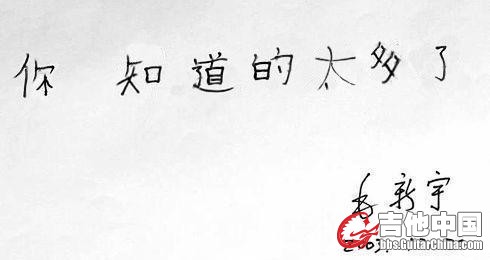 你知道的太多了
毛新宇
吉他中国
bbs.GuitarChina.com